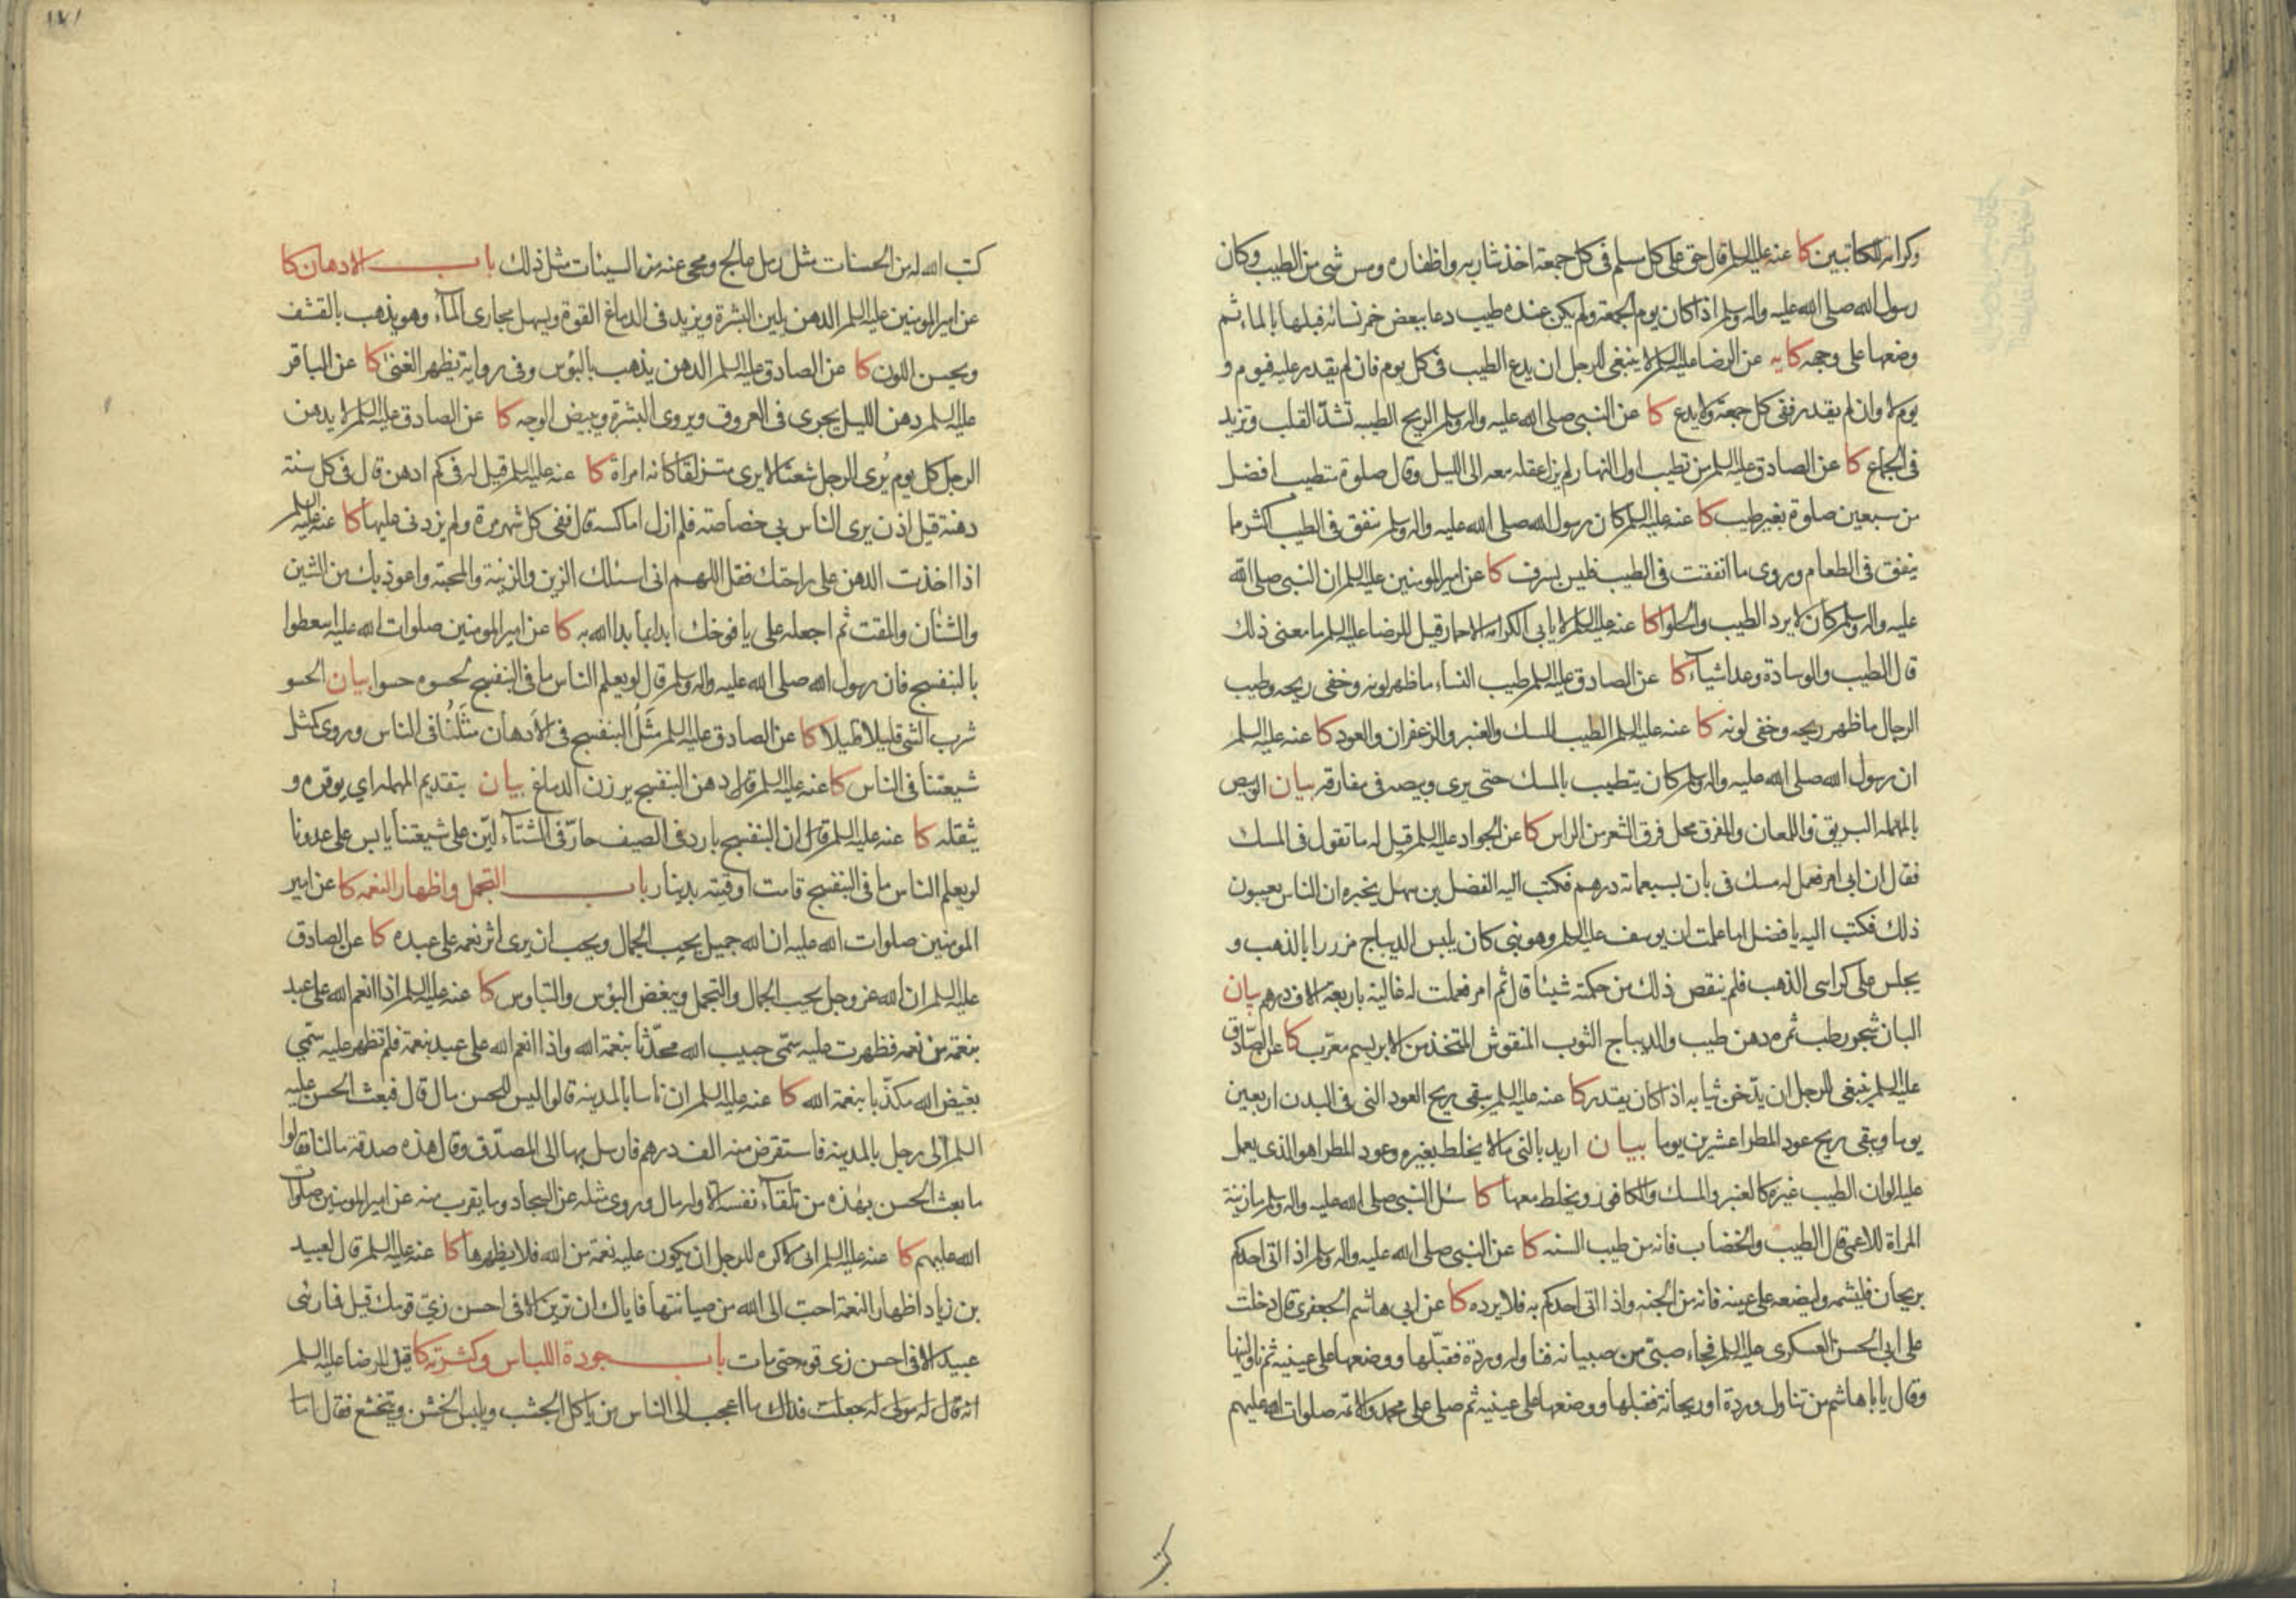 وكرامه للكاتبين كا عنه عليه السلم قال حق على كل مسلم فى كل جمعة اخذ شاربه واظفاره ومس شى من الطيب وكان
رسول الله صلى الله عليه واله وسلم اذا كان يوم الجمعة ولم يكن عنده طيب دعا ببعض خمر نسائه فبلها بالماء ثم
وضعها على وجهه كا يه عن الرضا عليه السلم لا ينبغى للرجل ان يدع الطيب فى كل يوم فان لم يقدر عليه فيوم و
يوم لا وان لم يقدر ففى كل جمعة ولا يدع كا عن النبى صلى الله عليه واله وسلم الريح الطيبه تشدّ القلب وتزيد
فى الجماع كا عن الصادق عليه السلم من تطيب اول النهار لم يزل عقله معه الى الليل وقال صلوة متطيب افضل
من سبعين صلوة بغير طيب كا عنه عليه السلم كان رسول الله صلى الله عليه واله وسلم ينفق فى الطيب اكثر ما
ينفق فى الطعام وروى ما انفقت فى الطيب فليس بسرف كا عن امير المومنين عليه السلم ان النبى صلى الله
عليه واله وسلم كان لا يرد الطيب والحلوا كا عنه عليه السلم لا يابى الكرامه الا حمار قيل للرضا عليه السلم ما معنى ذلك
قال الطيب والوسادة وعد اشياء كا عن الصادق عليه السلم طيب النساء ما ظهر لونه وخفى ريحه وطيب
الرجال ما ظهر ريحه وخفى لونه كا عنه عليه السلم الطيب المسك والعنبر والزعفران والعود كا عنه عليه السلم
ان رسول الله صلى الله عليه واله وسلم كان يتطيب بالمسك حتى يرى وبيصه فى مفارقه بيان الوبيص
بالمهمله البريق واللمعان والمفرق محل فرق الشعر من الراس كا عن الجواد عليه السلم قيل له ما تقول فى المسك
فقال ان ابى امر فعمل له مسك فى بان بسبعماة درهم فكتب اليه الفضل بن سهل يخبره ان الناس يعيبون
ذلك فكتب اليه يا فضل اما علمت ان يوسف عليه السلم وهو نبى كان يلبس الديباج مزررا بالذهب و
يجلس على كراسى الذهب فلم ينقص ذلك من حكمته شيئا قال ثم امر فعملت له غالية باربعة الاف درهم بيان
البان شجر ورطب ثمره دهن طيب والديباج الثوب المنقوش المتخذ من الابريسم معرّب كا عن الصّادق
عليه السلم ينبغى للرجل ان يدّخن ثيابه اذا كان يقدر كا عنه عليه السلم يبقى ريح العود النى فى البدن اربعين
يوما ويبقى ريح عود المطرا عشرين يوما بيان اريد بالنى ما لا يخلط بغيره وعود المطرا هو الذى يعمل
عليه الوان الطيب غيره كالعنبر والمسك والكافور ويخلط معها كا سئل النبى صلى الله عليه واله وسلم ما زينة
المراة للاعمى قال الطيب والخضاب فانه من طيب السنه كا عن النبى صلى الله عليه واله وسلم اذا اتى احدكم
بريحان فليشمه وليضعه على عينيه فانه من الجنه واذا اتى احدكم به فلا يرده كا عن ابى هاشم الجعفرى قال دخلت
على ابى الحسن العسكرى عليه السلم فجاء صبىّ من صبيانه فناوله وردة فقبّلها ووضعها على عينيه ثم ناولنيها
وقال يا ابا هاشم من تناول وردة او ريحانة فقبلها ووضعها على عينيه ثم صلى على محمد والائمه صلوات الله عليهم
كتب
١٧١
كتب الله له من الحسنات مثل رمل عالج ومحى عنه من السيئات مثل ذلك باب الادهان كا
عن امير المومنين عليه السلم الدهن يلين البشرة ويزيد فى الدماغ القوة ويسهل مجارى الماء وهو يذهب بالقشف
ويحسن اللون كا عن الصادق عليه السلم الدهن يذهب بالبؤس وفى رواية يظهر الغنى كا عن الباقر
عليه السلم دهن الليل يجرى فى العروق ويروى البشرة ويبيض الوجه كا عن الصادق عليه السلم لا يدهن
الرجل كل يوم يُرى الرجل شعثا لا يرى متزلقا كانه امراة كا عنه عليه السلم قيل له فى كم ادهن قال فى كل سنة
دهنة قيل اذن يرى الناس بى خصاصة فلم ازل اماكسه قال ففى كل شهر مرة ولم يزدنى عليها كا عنه عليه السلم
اذا اخذت الدهن على راحتك فقل اللهم انى اسئلك الزين والزينة والمحبة واعوذ بك من الشين
والشنأن والمقت ثم اجعله على يافوخك ابدا بما بدا الله به كا عن امير المومنين صلوات الله عليه اسعطوا
بالبنفسج فان رسول الله صلى الله عليه واله وسلم قال لو يعلم الناس ما فى البنفسج لحسوه حسوا بيان الحسو
شرب الشى قليلا قليلا كا عن الصادق عليه السلم مَثَلُ البنفسج فى الادهان مثَلُنا فى الناس وروى كمثل
شيعتنا فى الناس كا عنه عليه السلم قال دهن البنفسج يرزن الدماغ بيان بتقديم المهمله اي يوقره و
يثقله كا عنه عليه السلم قال ان البنفسج بارد فى الصيف حارّ فى الشتاء ليّن على شيعتنا يابس على عدونا
لو يعلم الناس ما فى البنفسج قامت اوقيته بدينار باب التجمل واظهار النعمه كا عن امير
المومنين صلوات الله عليه ان الله جميل يحب الجمال ويحب ان يرى اثر نعمه على عبده كا عن الصادق
عليه السلم ان الله عز وجل يحب الجمال والتجمل ويبغض البؤس والتباوس كا عنه عليه السلم اذا انعم الله على عبد
بنعمة من نعمه فظهرت عليه سمّى حبيب الله محدّثا بنعمة الله واذا انعم الله على عبد بنعمة فلم تظهر عليه سمّي
بغيض الله مكذّبا بنعمة الله كا عنه عليه السلم ان ناسا بالمدينه قالوا ليس للحسن مال قال فبعث الحسن عليه
السلم الى رجل بالمدينه فاستقرض منه الف درهم فارسل بها الى المصدّق وقال هذه صدقة مالنا فقالوا
ما بعث الحسن بهذه من تلقاء نفسه الا وله مال وروى مثله عن السجاد وما يقرب منه عن امير المومنين صلوات
الله عليهم كا عنه عليه السلم انى لاكره للرجل ان يكون عليه نعمة من الله فلا يظهرها كا عنه عليه السلم قال لعبيد
بن زياد اظهار النعمة احب الى الله من صيانتها فاياك ان تزين الا فى احسن زيّ قومك قيل فما رئى
عبيد الا فى احسن زى قومه حتى مات باب جودة اللباس وكثرته كا قيل للرضا عليه السلم
انه قال له مولى له جعلت فداك ما اعجب الى الناس من ياكل الجشب ويلبس الخشن ويتخشع فقال اما